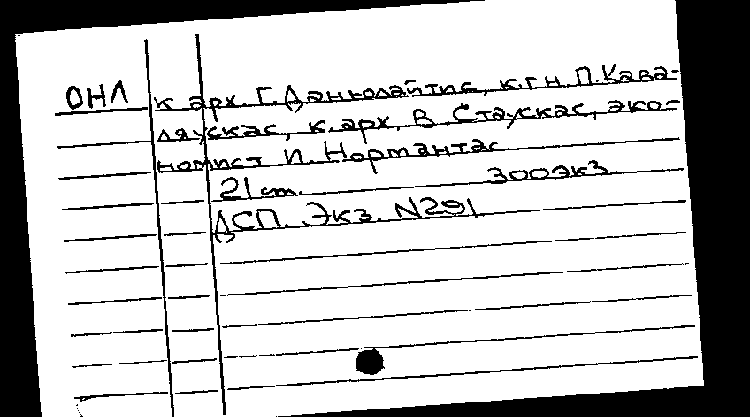 ОНЛ
к арх. Г. Данюлайтис, к.г.н. П. Кава-
ляускас, к. арх. В. Стаускас, эко-
номист И. Нормантас
21 см. 300 экз
ДСП. Экз. N291